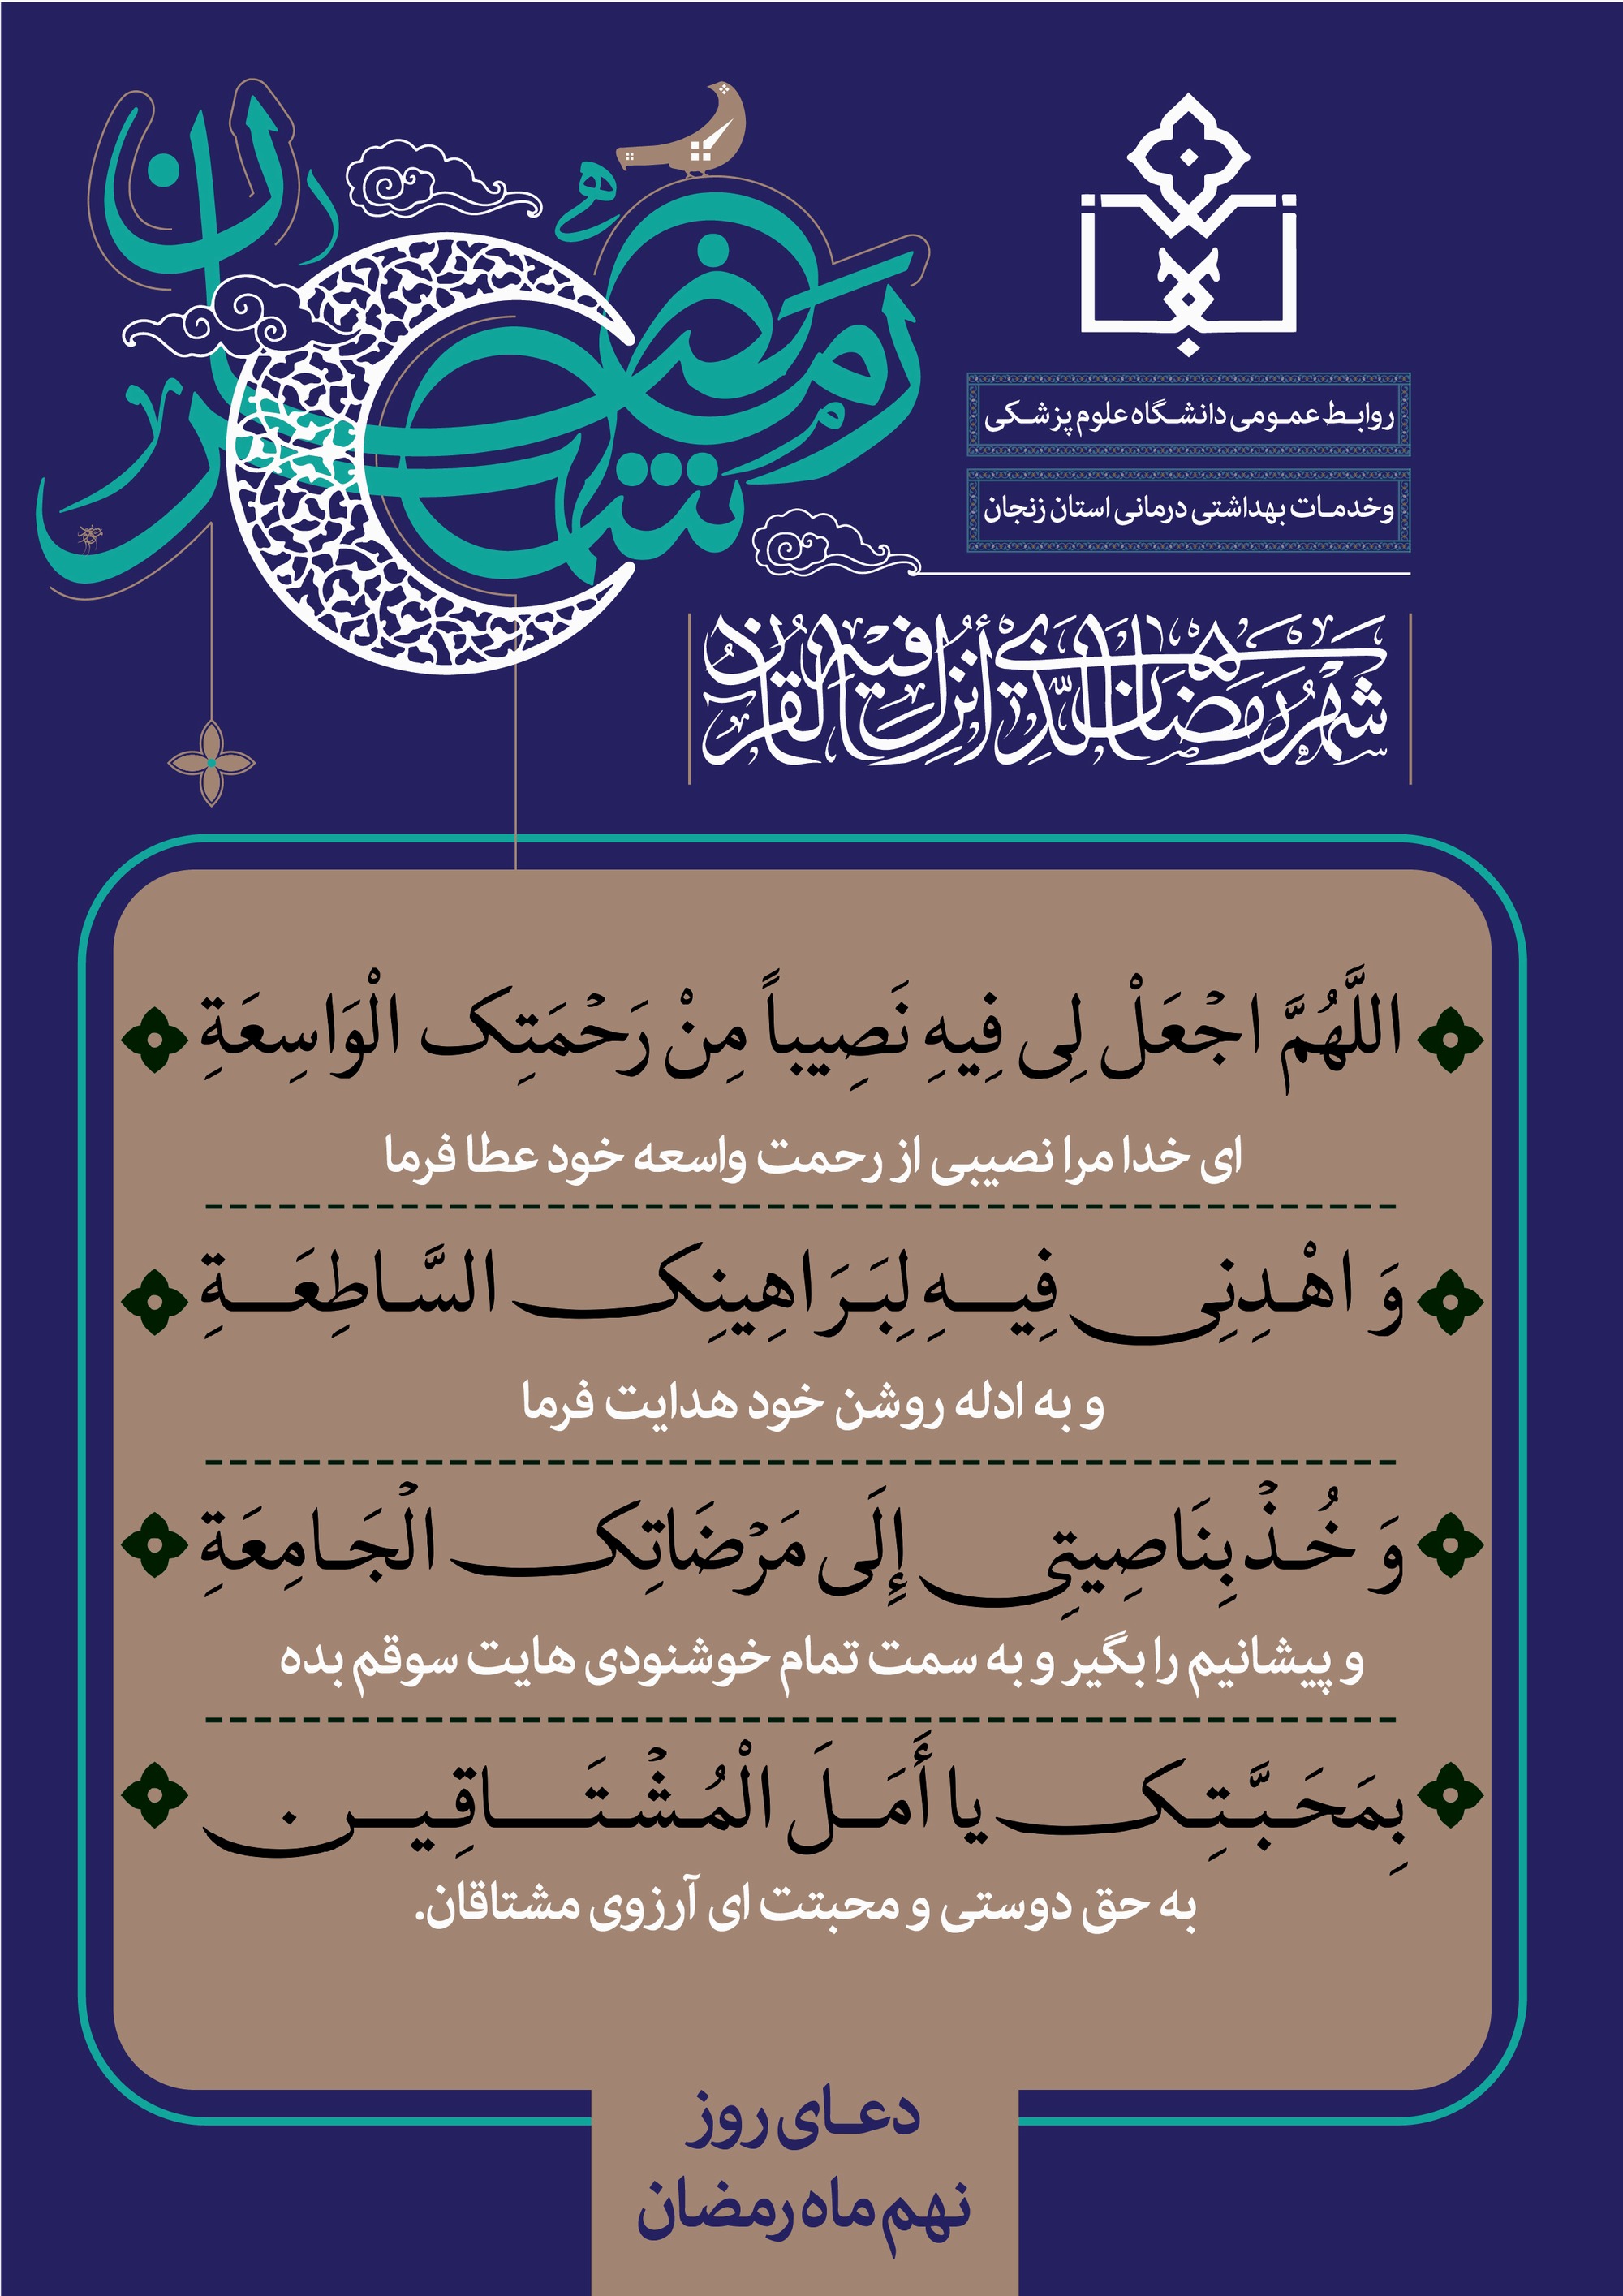 شهر رمضان
روابط عمومی دانشگاه علوم پزشکی
وخدمات بهداشتی درمانی استان زنجان
شهر رمضان الذی أنزل فیه القرآن
اللَّهُمَّ اجْعَلْ لِی فِیهِ نَصِیباً مِنْ رَحْمَتِک الْوَاسِعَةِ
ای خدا مرا نصیبی از رحمت واسعه خود عطا فرما
وَ اهْدِنِی فِیهِ لِبَرَاهِینِک السَّاطِعَةِ
و به ادله روشن خود هدایت فرما
وَ خُذْ بِنَاصِیتِی إِلَی مَرْضَاتِک الْجَامِعَةِ
و پیشانیم را بگیر و به سمت تمام خوشنودی هایت سوقم بده
بِمَحَبَّتِک یا أَمَلَ الْمُشْتَاقِین .
به حق دوستی و محبتت ای آرزوی مشتاقان.
دعای روز
نهم ماه رمضان